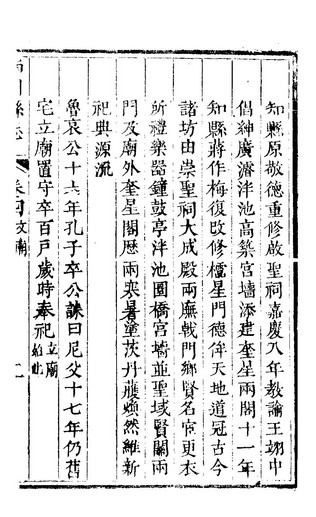 知縣原敬德重修啟聖祠嘉慶八年教諭王翊中
倡紳廣濬泮池高築宮墻添建奎星兩閣十一年
知縣蔣作梅復改修櫺星門德侔天地道冠古今
諸坊由崇聖祠大成殿兩廡戟門鄉賢名宦更衣
所禮樂器鐘鼓亭泮池圜橋宮墻並聖域賢關兩
門及廟外奎星閣歷兩寒暑塗茨丹雘煥然維新
祀典源流
魯哀公十六年孔子卒公誄曰尼父十七年仍舊
宅立廟置守卒百戶歲時奉祀立廟始此
縣志 卷四 文廟